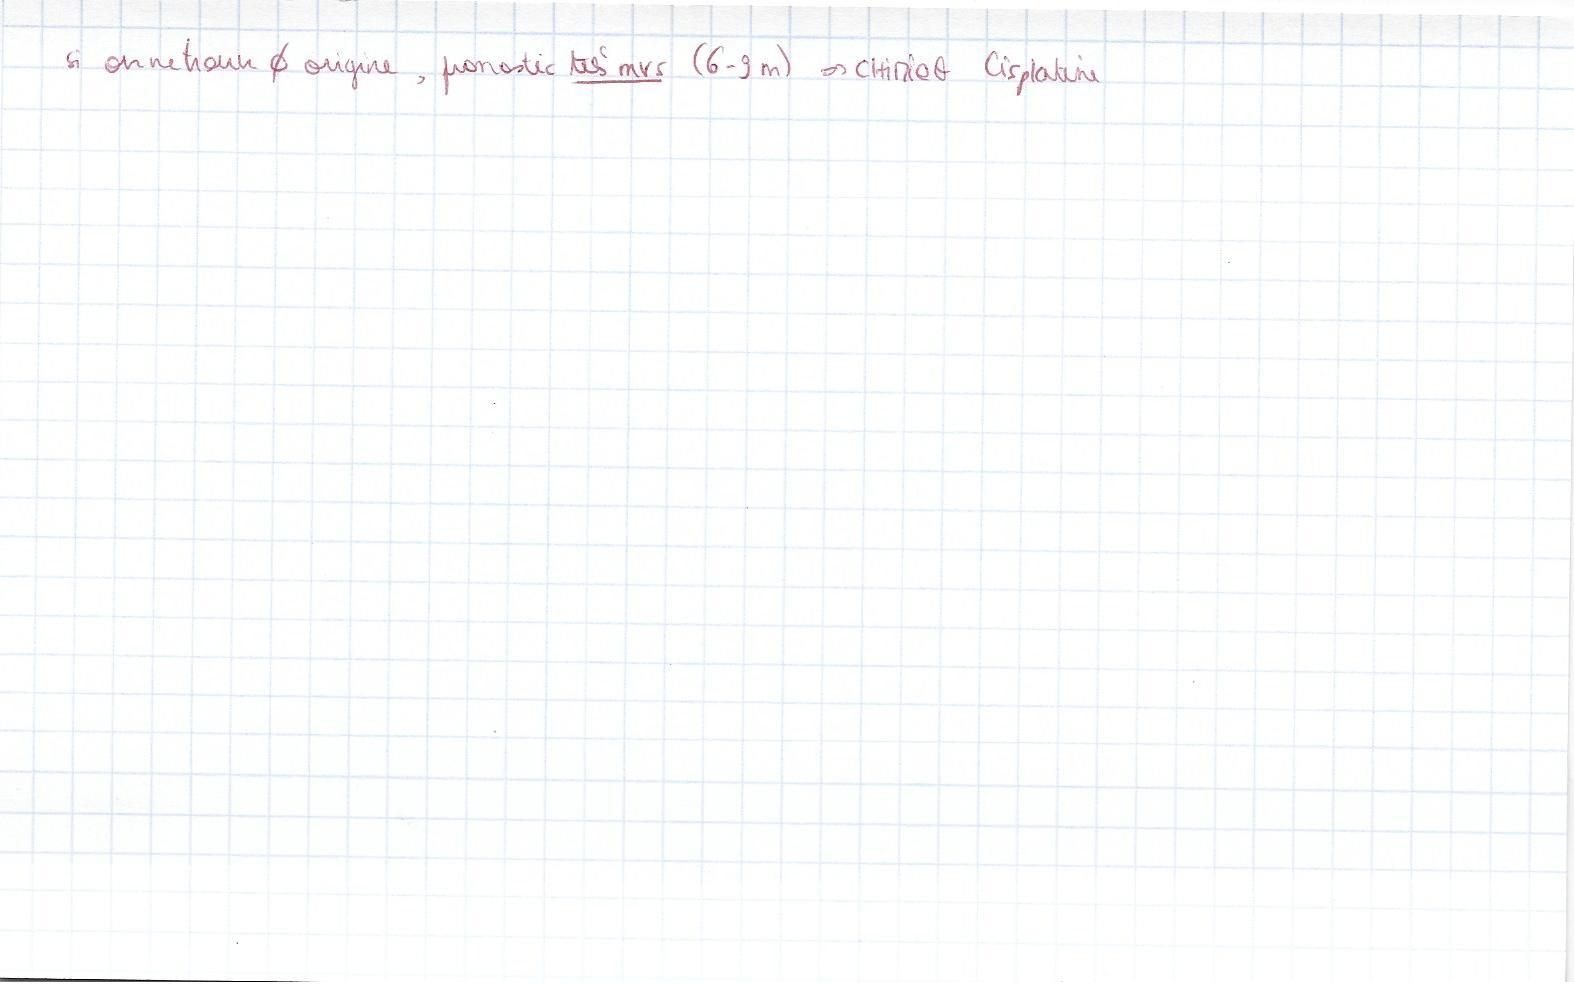 si on ne trouve ϕ origine, pronostic très mvs (6-9 m) => CHIMIOθ Cisplatine